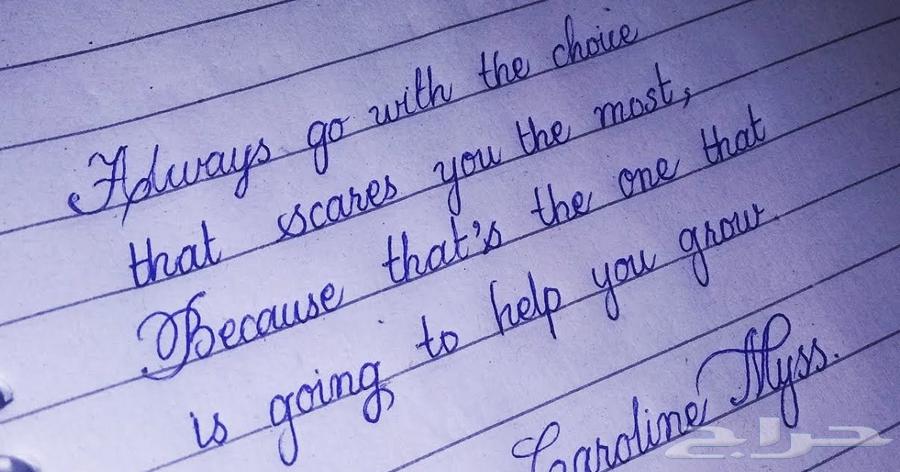 Always go with the choice
that scares you the most,
Because that's the one that
is going to help you grow.
Caroline Myss.
حراج